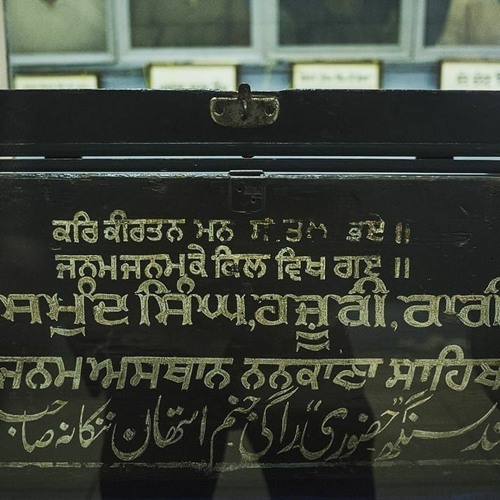 ਕਰਿ ਕੀਰਤਨ ਮਨ ਸੀਤਲ ਭਏ ॥
ਜਨਮ ਜਨਮ ਕੇ ਕਿਲ ਵਿਖ ਗਏ ॥
ਸਮੁੰਦ ਸਿੰਘ, ਹਜ਼ੂਰੀ, ਰਾਗੀ
ਜਨਮ ਅਸਥਾਨ ਨਨਕਾਣਾ ਸਾਹਿਬ
سنگھ "حضوری" راگی جنم استھان ننکانہ صاحب